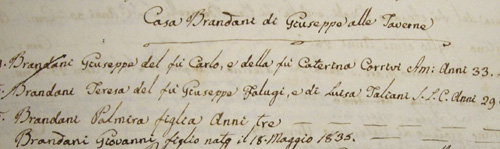 Casa Brandani di Giuseppe alle Taverne
Brandani Giuseppe del fù Carlo, e della fù Caterina Corsivi Anni 33.
Brandani Teresa del fù Giuseppe Falugi, e di Luisa Taliani S.S.C. Anni 29
Brandani Palmira figlia Anni tre
Brandani Giovanni figlio nato il 18 Maggio 1835.